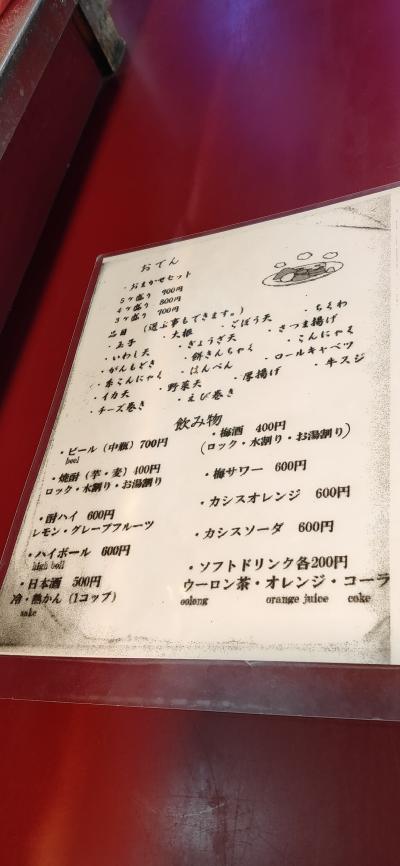 おでん
・おまかせセット
5ヶ盛り 900円
4ヶ盛り 800円
3ヶ盛り 700円
品目 (選ぶ事もできます。)
・玉子 ・大根 ・ごぼう天 ・ちくわ
・いわし天 ・ぎょうざ天 ・さつま揚げ
・がんもどき ・餅きんちゃく ・こんにゃく
・糸こんにゃく ・はんぺん ・ロールキャベツ
・イカ天 ・野菜天 ・厚揚げ ・牛スジ
・チーズ巻き ・えび巻き
飲み物
・ビール (中瓶) 700円
beel
・焼酎 (芋・麦) 400円
ロック・水割り・お湯割り
・酎ハイ 600円
レモン・グレープフルーツ
・ハイボール 600円
high boll
・日本酒 500円
冷・熱かん (1コップ)
sake
・梅酒 400円
(ロック・水割り・お湯割り)
・梅サワー 600円
・カシスオレンジ 600円
・カシスソーダ 600円
・ソフトドリンク各200円
ウーロン茶・オレンジ・コーラ
oolong orange juice coke